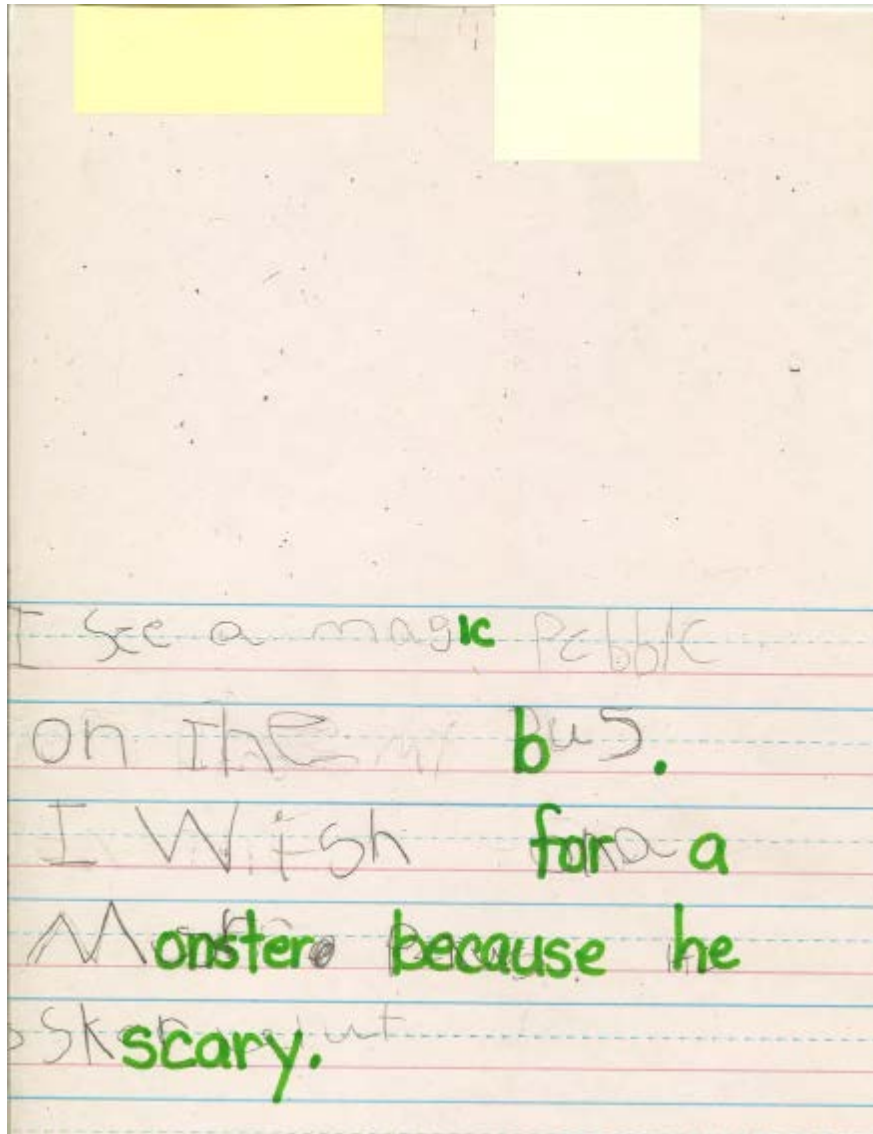 I see a magic Pebble
on The bus.
I Wish for a
Monster. because he
scary.